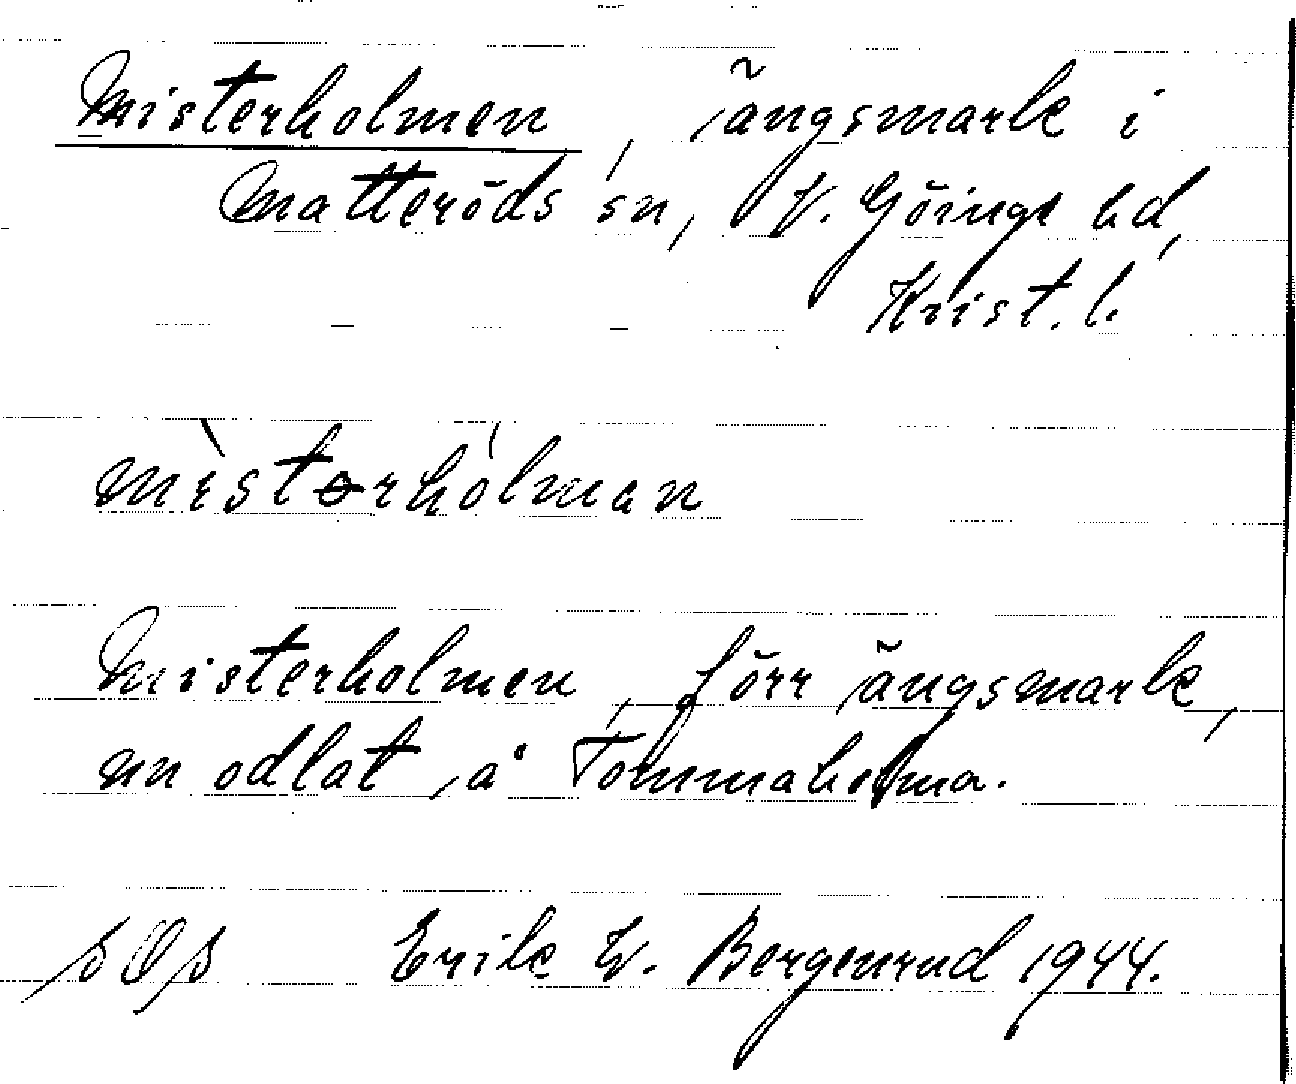 Misterholmen, ängsmark i
Matteröds sn, V. Göinge hd,
Krist. l.
mìstərhólman
Misterholmen, förr ängsmark,
nu odlat, å Tommaholma.
Erik W. Bergenrud 1944.